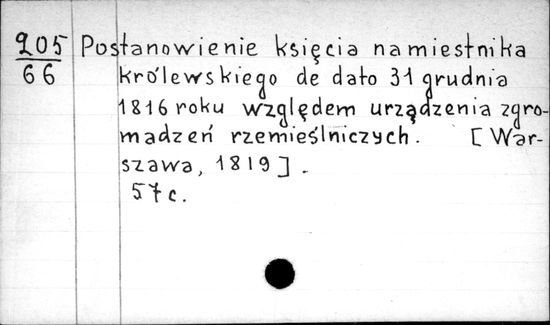 205 Postanowienie księcia namiestnika
66 królewskiego de dato 31 grudnia
1816 roku względem urządzenia zgro-
madzeń rzemieślniczych. [War-
szawa, 1819].
57 c.